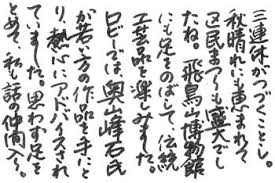 三連休がつづくことし。
秋晴れにも恵まれて
区民まつりも盛大でし
たね。飛鳥山博物館
にも足をのばして、伝統
工芸品を楽しみました。
ロビーでは、奥山峰石氏
が若い方の作品を手にと
り、熱心にアドバイスされ
ていました。思わず足を
とめて、私も話の仲間入り。